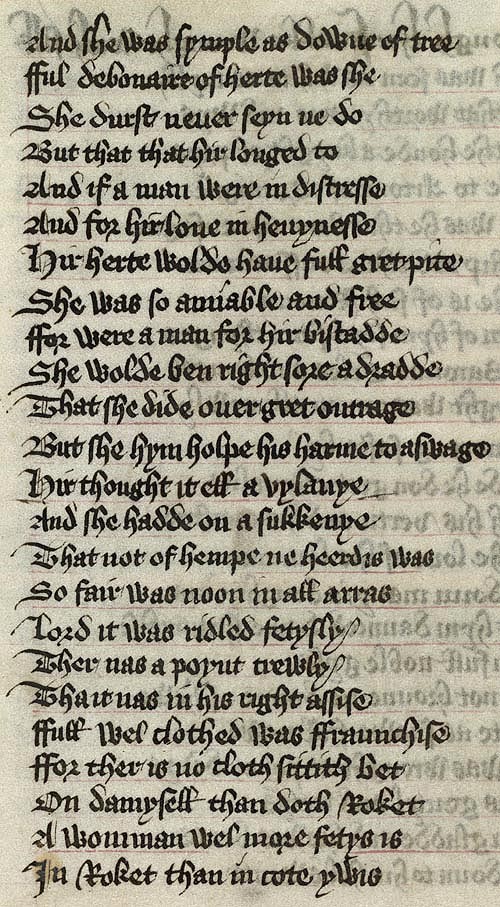 And she was symple as dowue of tree
fful debonaire of herte was she
She durst neuer seyn ne do
But that that hir longed to
And if a man were in distresse
And for hir loue in heuynesse
Hir herte wolde haue full gret pite
She was so amiable and free
ffor were a man for hir bistadde
She wolde ben right sore adradde
That she dide ouer gret outrage
But she hym holpe his harme to aswage
Hir thought it ell a vylanye
And she hadde on a sukkenye
That not of hempe ne heerdis was
So fair was noon in all arras
Lord it was ridled fetysly
Ther nas a poynt trewly
That it nas in his right assise
ffull wel clothed was ffraunchise
ffor ther is no cloth sittith bet
On damysell than doth Roket
A womman wel more fetys is
In Roket than in cote ywis